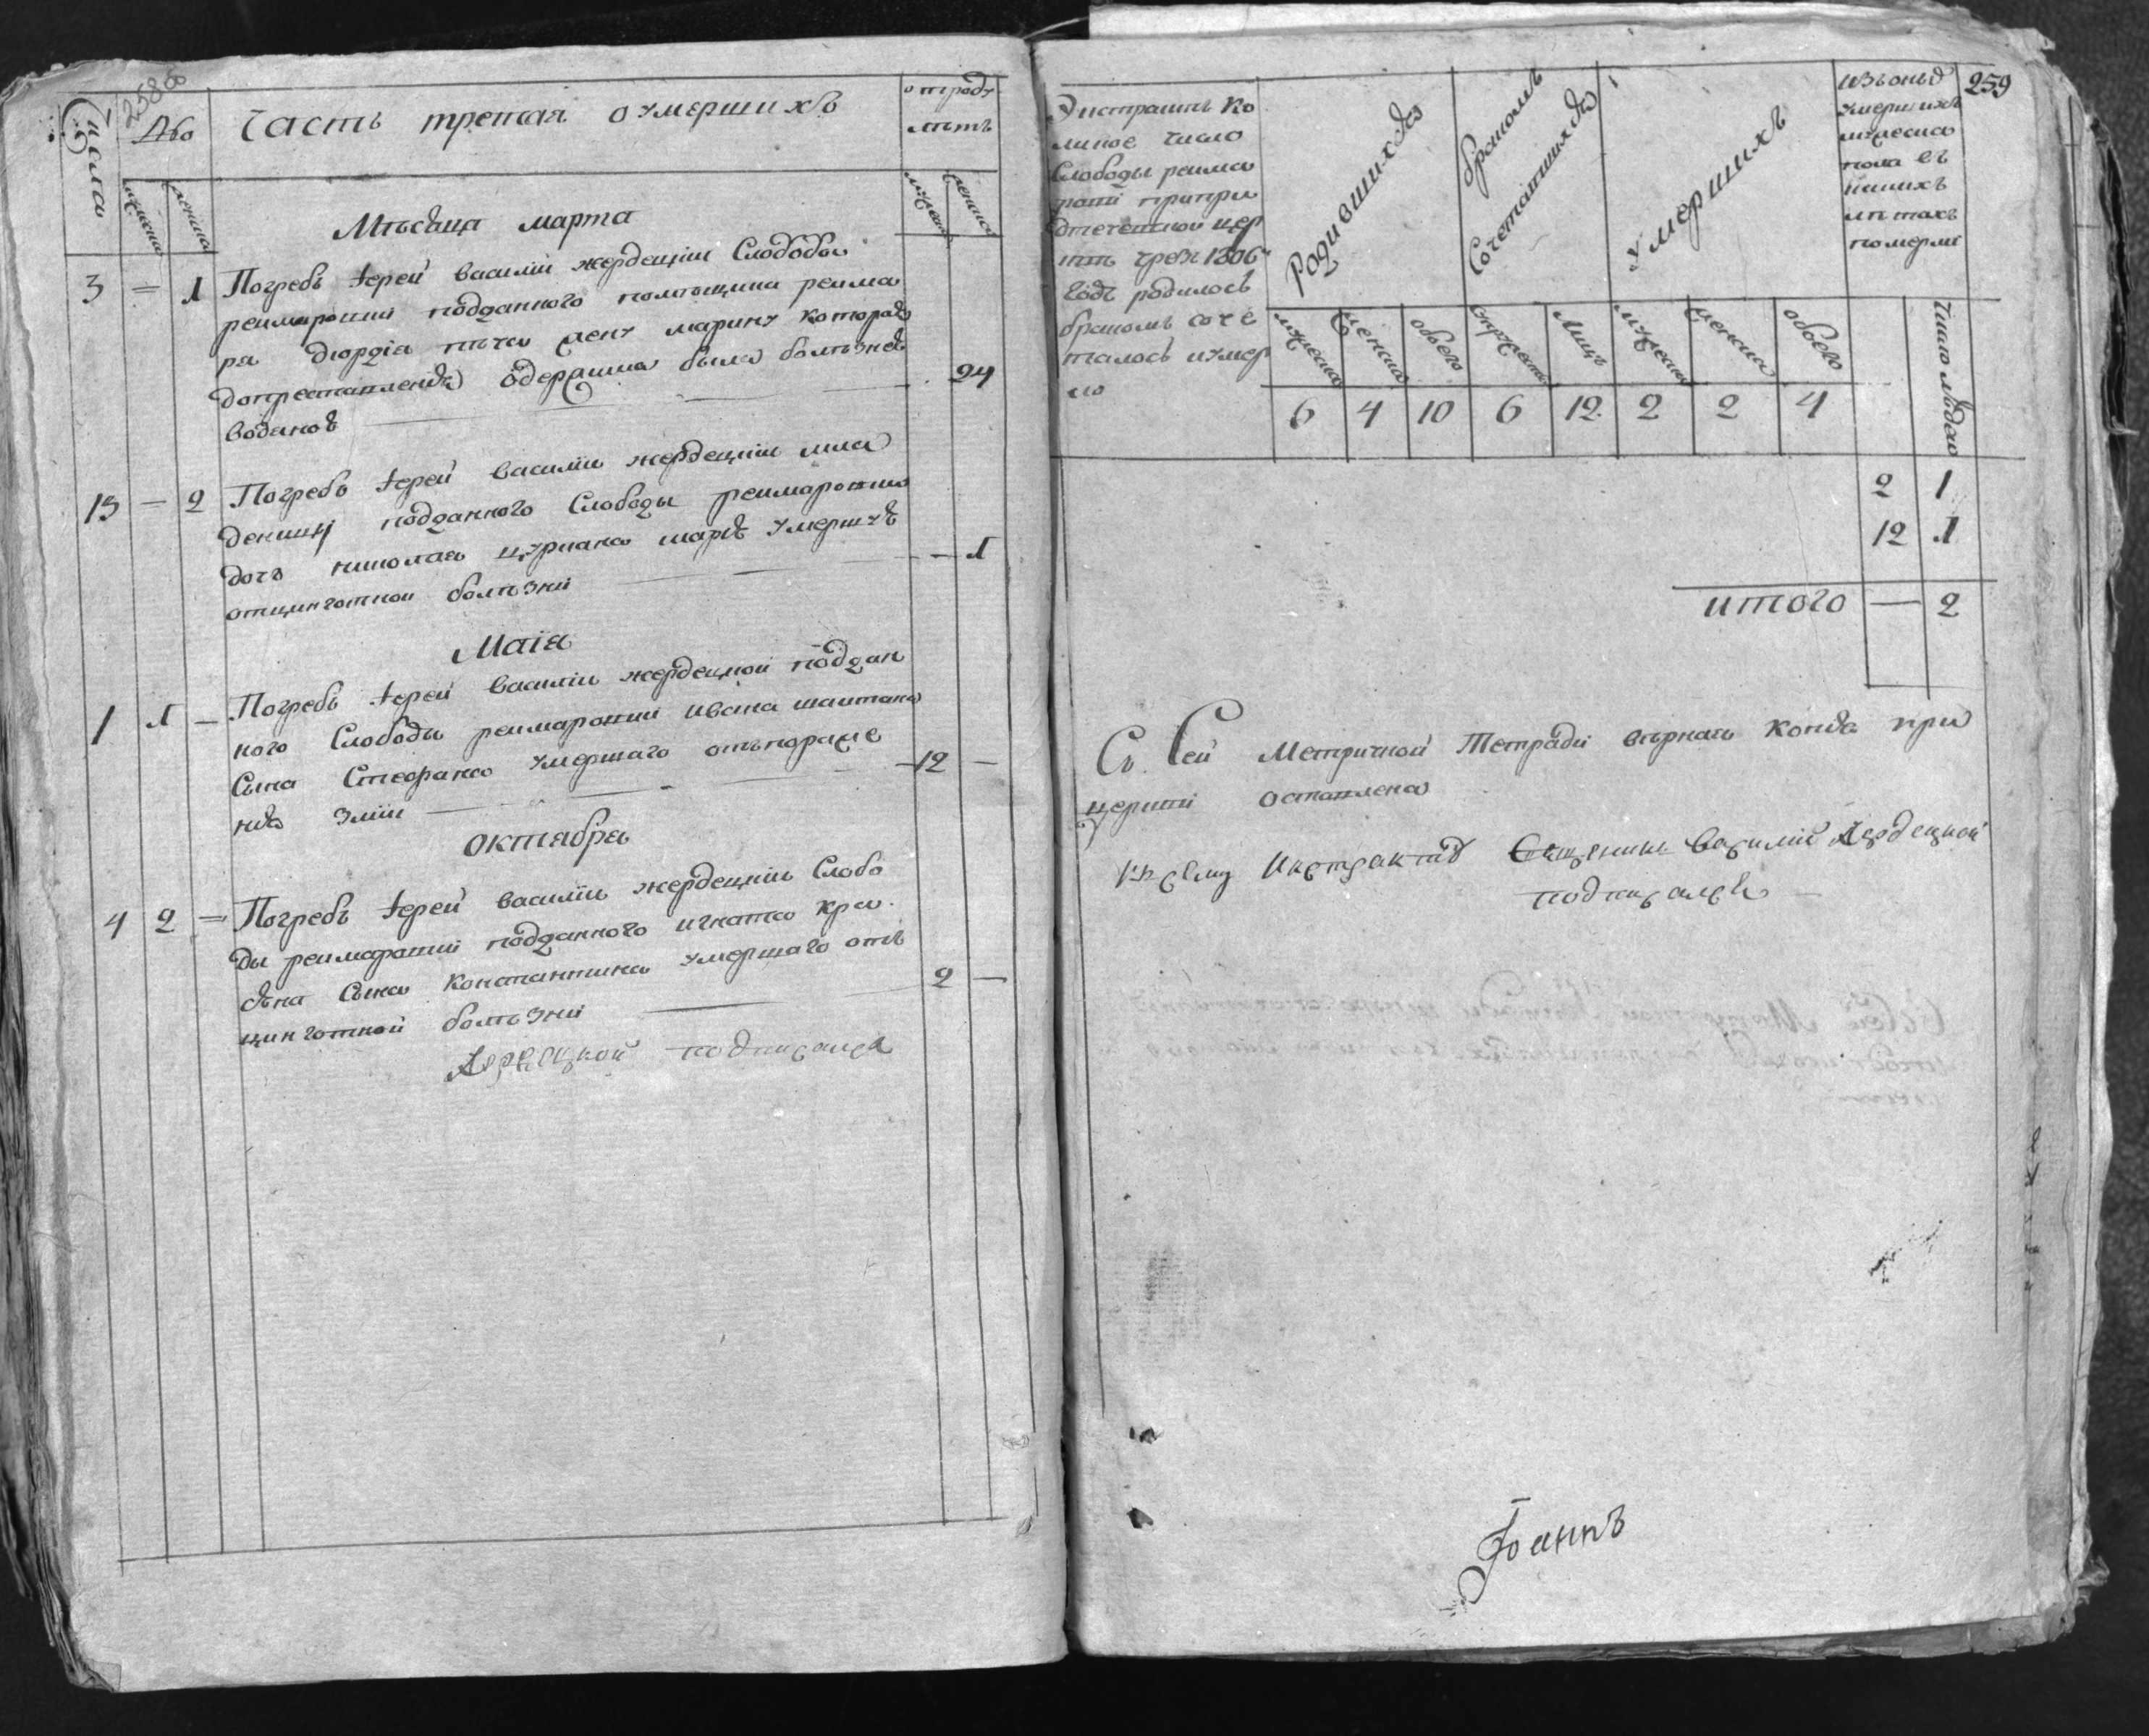 258об
Числа
№
Часть третая о умершихъ
отроду
лѣтъ
мужеска
женска
мужеска
женска
Мѣсяца марта
3 — 1 Погребъ іерей василій жердецкій Слободы
реймаровки подданного помѣщика реима
ра дюрдія жену марину которая
допреставленія одержима была болѣзнею
24
водяною
13 — 2 Погребъ іерей василій жердецкій мла
деницу подданного Слободы реймаровки
дочь николая марію умершую
— 1
отцинготной болѣзни
Маія
1 1 — Погребъ іерей василій жердецкой поддан
ного Слободы реймаровки ивана
Сына Стефана умершаго отъпораже
12 —
нія зміи
октября
4 2 — Погребъ іерей василій жердецкій Слобо
ды реймаровки подданного игната
Сына Константина умершаго отъ
2 —
цинготной болѣзни
Жердецкой подписался
259
Экстрактъ ко
ликое число
Слободы реима
ровки припре
дтечевской цер
кви чрезъ 1806
годъ родилось
бракомъ соче
талось иумер
ло
Родившихся
бракомъ
Сочетавшихся
Умершихъ
изъоныхъ
умершихъ
мужеска
пола въ
какихъ
лѣтахъ
померли
мужеска
женска
обоего
Супружествъ
Лицъ
мужеска
женска
обоего
число людей
6 4 10 6 12 2 2 4
2 1
12 1
итого — 2
Съ Сей Метричной Тетради вѣрная копія при
церкви оставлена
Къ Сему Икстракту Священникъ Василій Жердецкой
подписался
Іоаннъ